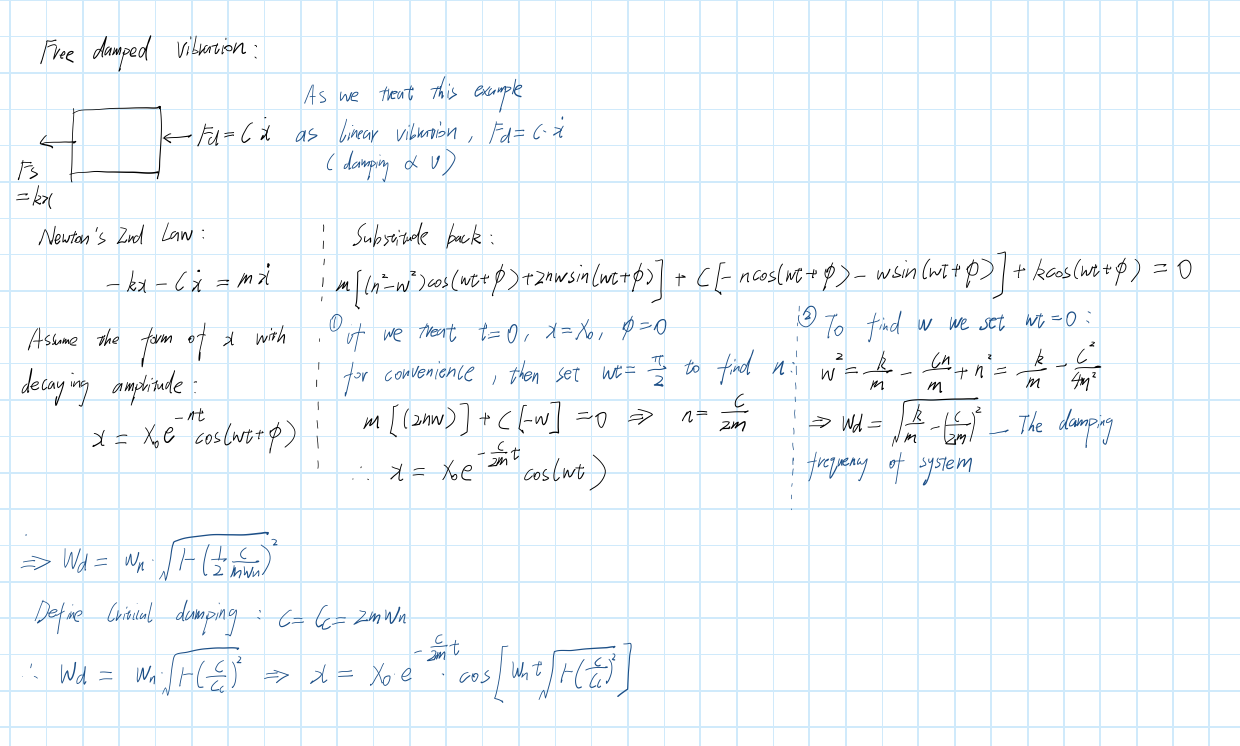 Free damped vibration:
As we treat this example
as linear vibration, Fd = C·ẋ
(damping ∝ v)
← Fd = Cẋ
Fs
= kx
Newton's 2nd Law:
-kx - Cẋ = mẋ
Assume the form of x with
decaying amplitude:
x = X₀e^{-nt} cos(wt+ϕ)
Substitude back:
m[(n²-w²)cos(wt+ϕ)+2nwsin(wt+ϕ)] + C[-ncos(wt+ϕ) - wsin(wt+ϕ)] + kcos(wt+ϕ) = 0
① if we treat t=0, x=X₀, ϕ=0
for convenience, then set wt = π/2 to find n:
m[(2nw)] + C[-w] = 0 ⇒ n = C/2m
∴ x = X₀e^{-(C/2m)t} cos(wt)
② To find w we set wt=0:
w² = k/m - Cn/m + n² = k/m - C²/4m²
⇒ Wd = √(k/m - (C/2m)²) — The damping
frequency of system
⇒ Wd = Wn·√(1-(1/2 C/mWn)²)
Define Critical damping: C = Cc = 2mWn
∴ Wd = Wn·√(1-(C/Cc)²) ⇒ x = X₀·e^{-(C/2m)t}·cos[Wnt√(1-(C/Cc)²)]